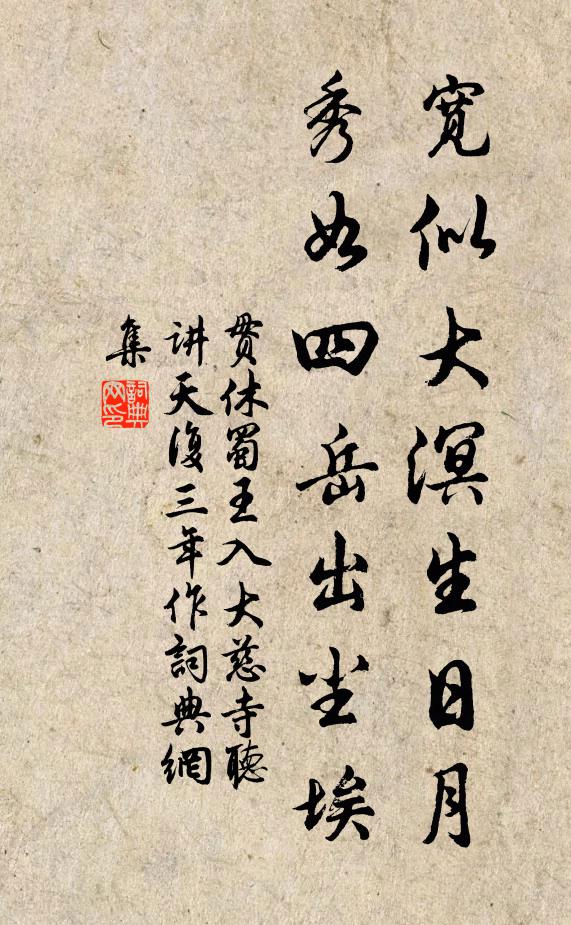 寛似大溟生日月
秀如四岳出尘埃
贯休蜀王入大慈寺聽
讲天復三年作詞典網
集
詞典网印